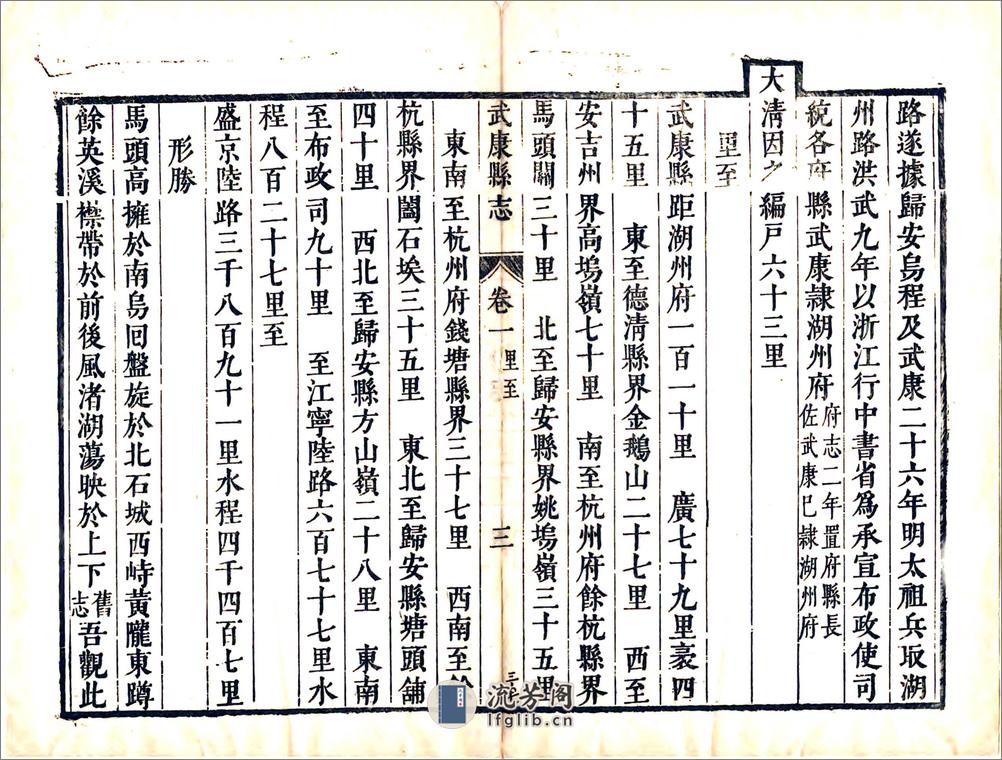 路遂據歸安烏程及武康二十六年明太祖兵取湖
州路洪武九年以浙江行中書省爲承宣布政使司
統各府縣武康隷湖州府府志二年置府縣長
佐武康已隷湖州府
大清因之編戸六十三里
里至
武康縣距湖州府一百一十里 廣七十九里袤四
十五里 東至德清縣界金鵝山二十七里 西至
安吉州界高塢嶺七十里 南至杭州府餘杭縣界
馬頭關三十里 北至歸安縣界姚塢嶺三十五里
武康縣志 卷一 里至 三
東南至杭州府錢塘縣界三十七里 西南至餘
杭縣界闔石埃三十五里 東北至歸安縣塘頭舖
四十里 西北至歸安縣方山嶺二十八里 東南
至布政司九十里 至江寧陸路六百七十七里水
程八百二十七里至
盛京陸路三千八百九十一里水程四千四百七里
形勝
馬頭高擁於南烏囘盤旋於北石城西峙黃隴東蹲
餘英溪襟帶於前後風渚湖蕩映於上下舊志吾觀此
流芳阁
lfglib.cn